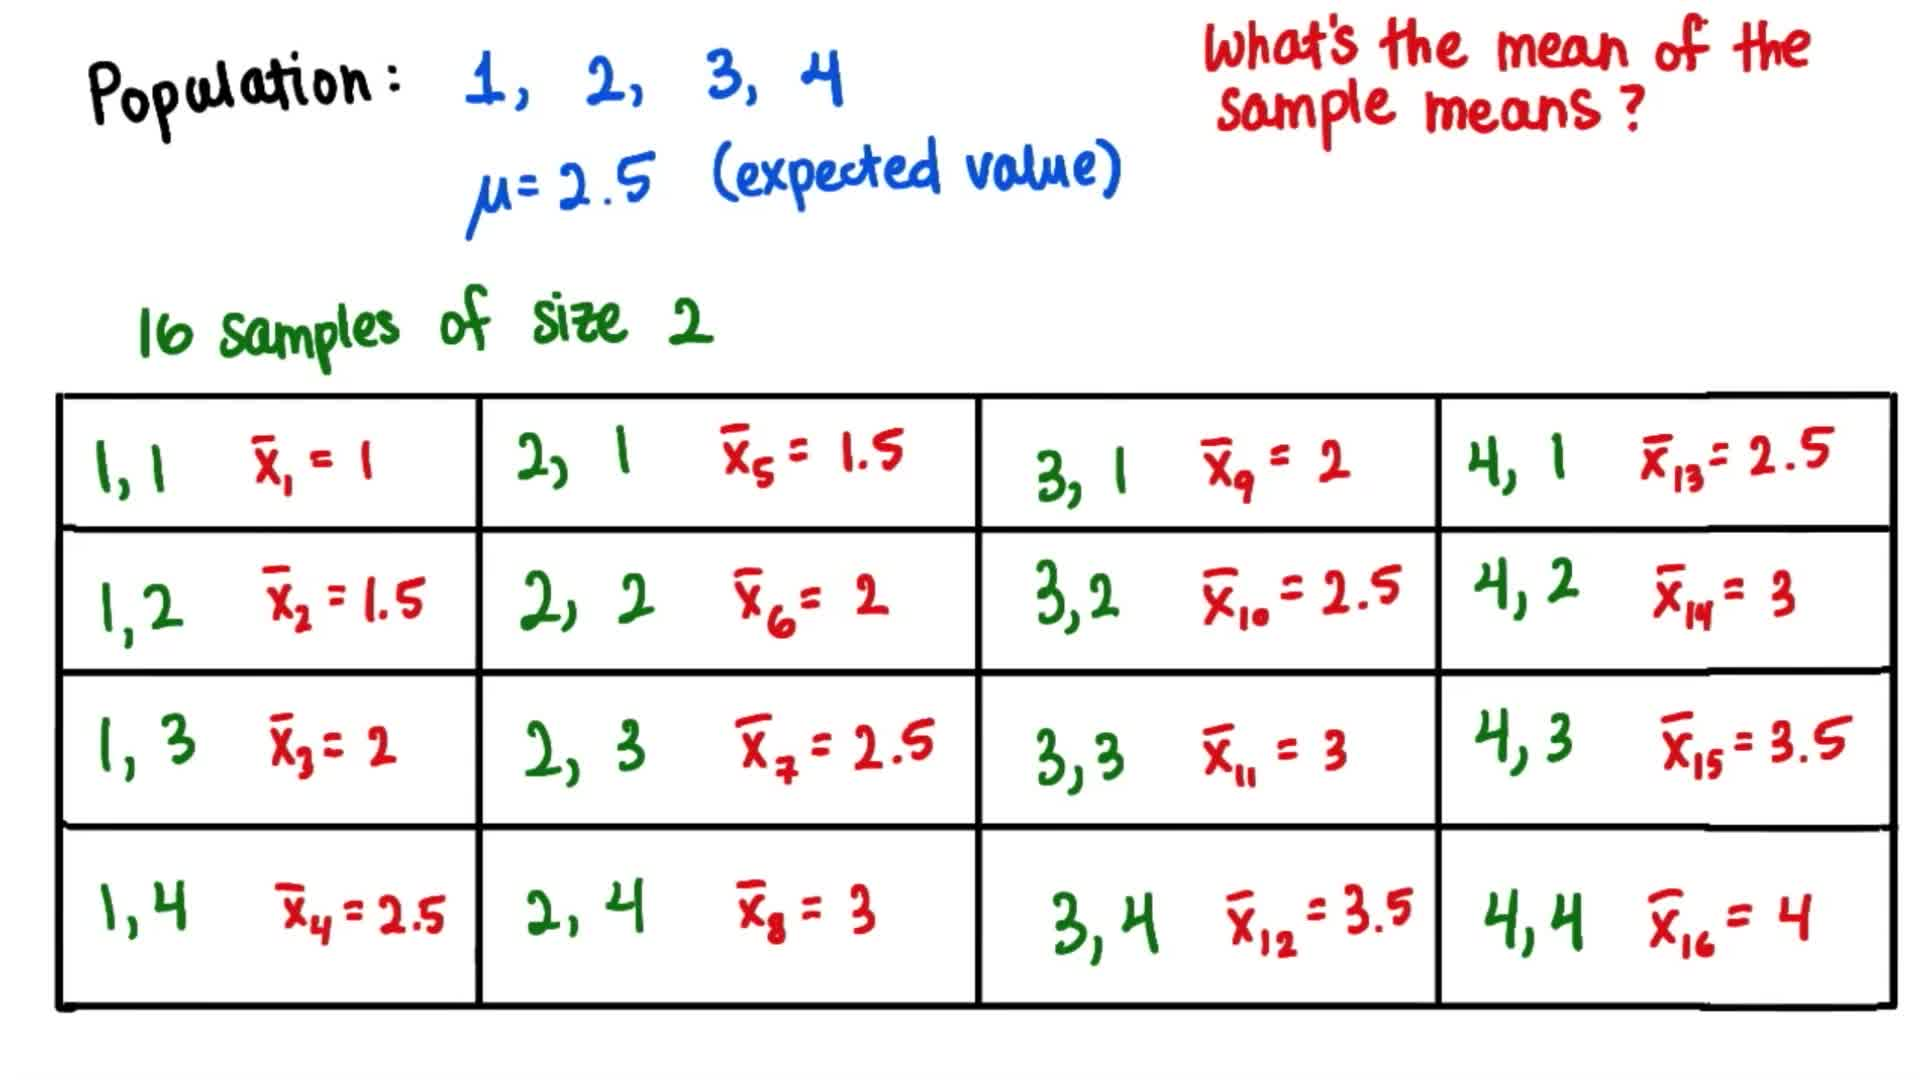 Population: 1, 2, 3, 4
μ = 2.5 (expected value)
What's the mean of the
sample means?
16 samples of size 2
1, 1 x̄₁ = 1 2, 1 x̄₅ = 1.5 3, 1 x̄₉ = 2 4, 1 x̄₁₃ = 2.5
1, 2 x̄₂ = 1.5 2, 2 x̄₆ = 2 3, 2 x̄₁₀ = 2.5 4, 2 x̄₁₄ = 3
1, 3 x̄₃ = 2 2, 3 x̄₇ = 2.5 3, 3 x̄₁₁ = 3 4, 3 x̄₁₅ = 3.5
1, 4 x̄₄ = 2.5 2, 4 x̄₈ = 3 3, 4 x̄₁₂ = 3.5 4, 4 x̄₁₆ = 4